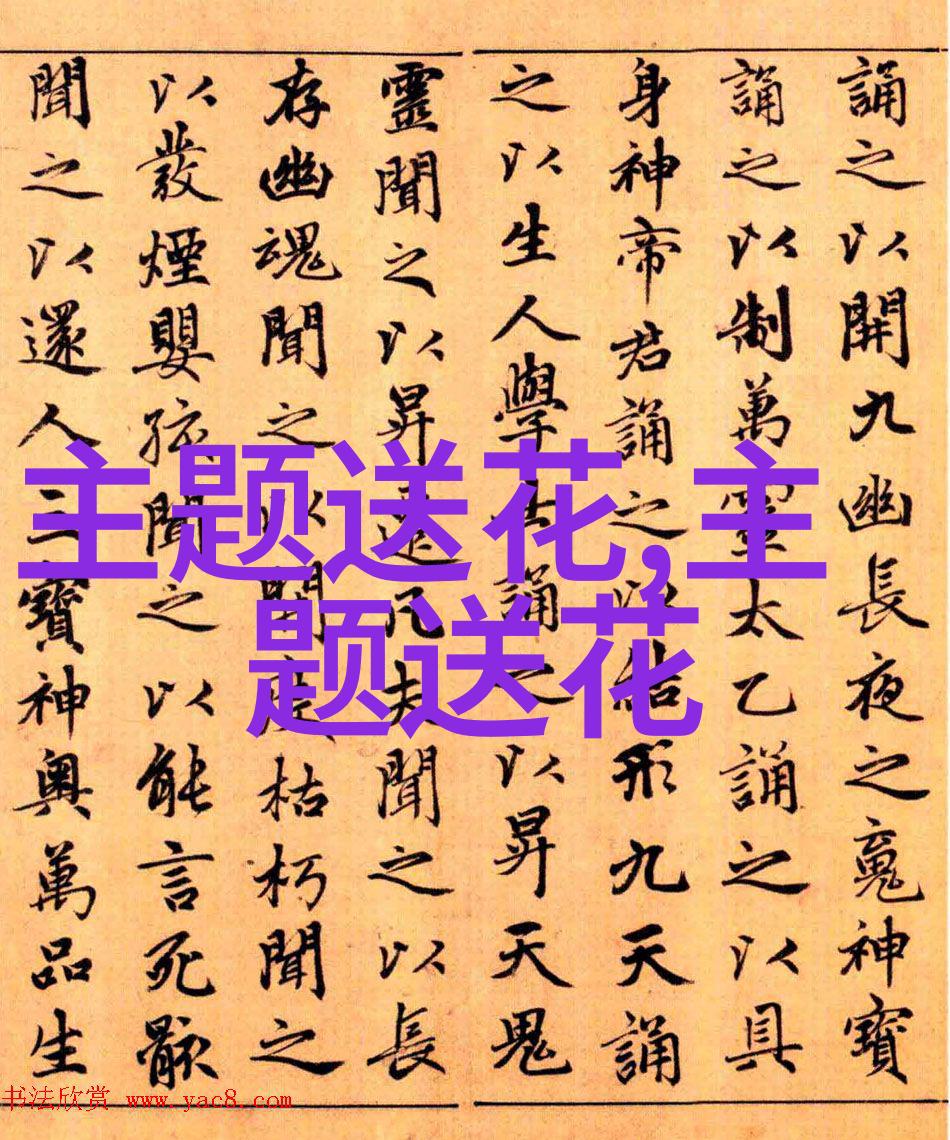 誦之以開九幽長夜之䰟神寶
誦之以制萬靈太乙誦之以具
身神帝君誦之以結形九天誦
之以生人學士誦之以昇天鬼
靈聞之以昇遷凡夫聞之以長
存幽魂聞之以開度枯朽聞之
以發煙嬰孩聞之以能言死骸
聞之以還人三寶神奥萬品生
主题送花,主
题送花
书法欣赏 www.yac8.com